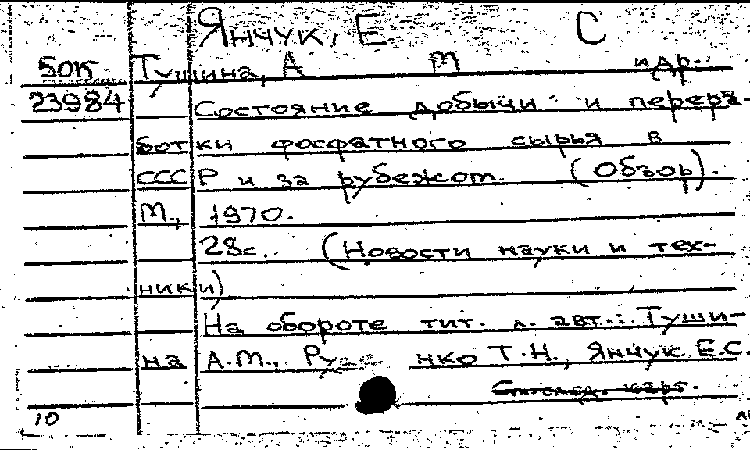 Янчук, Е С
БОК Тушина, А М и др.
23984 Состояние добычи и перера-
ботки фосфатного сырья в
СССР и за рубежом. (Обзор).
М., 1970.
28с. (Новости науки и тех-
ники)
На обороте тит. л. авт.: Туши-
на А.М., нко Т.Н., Янчук Е.С.
10